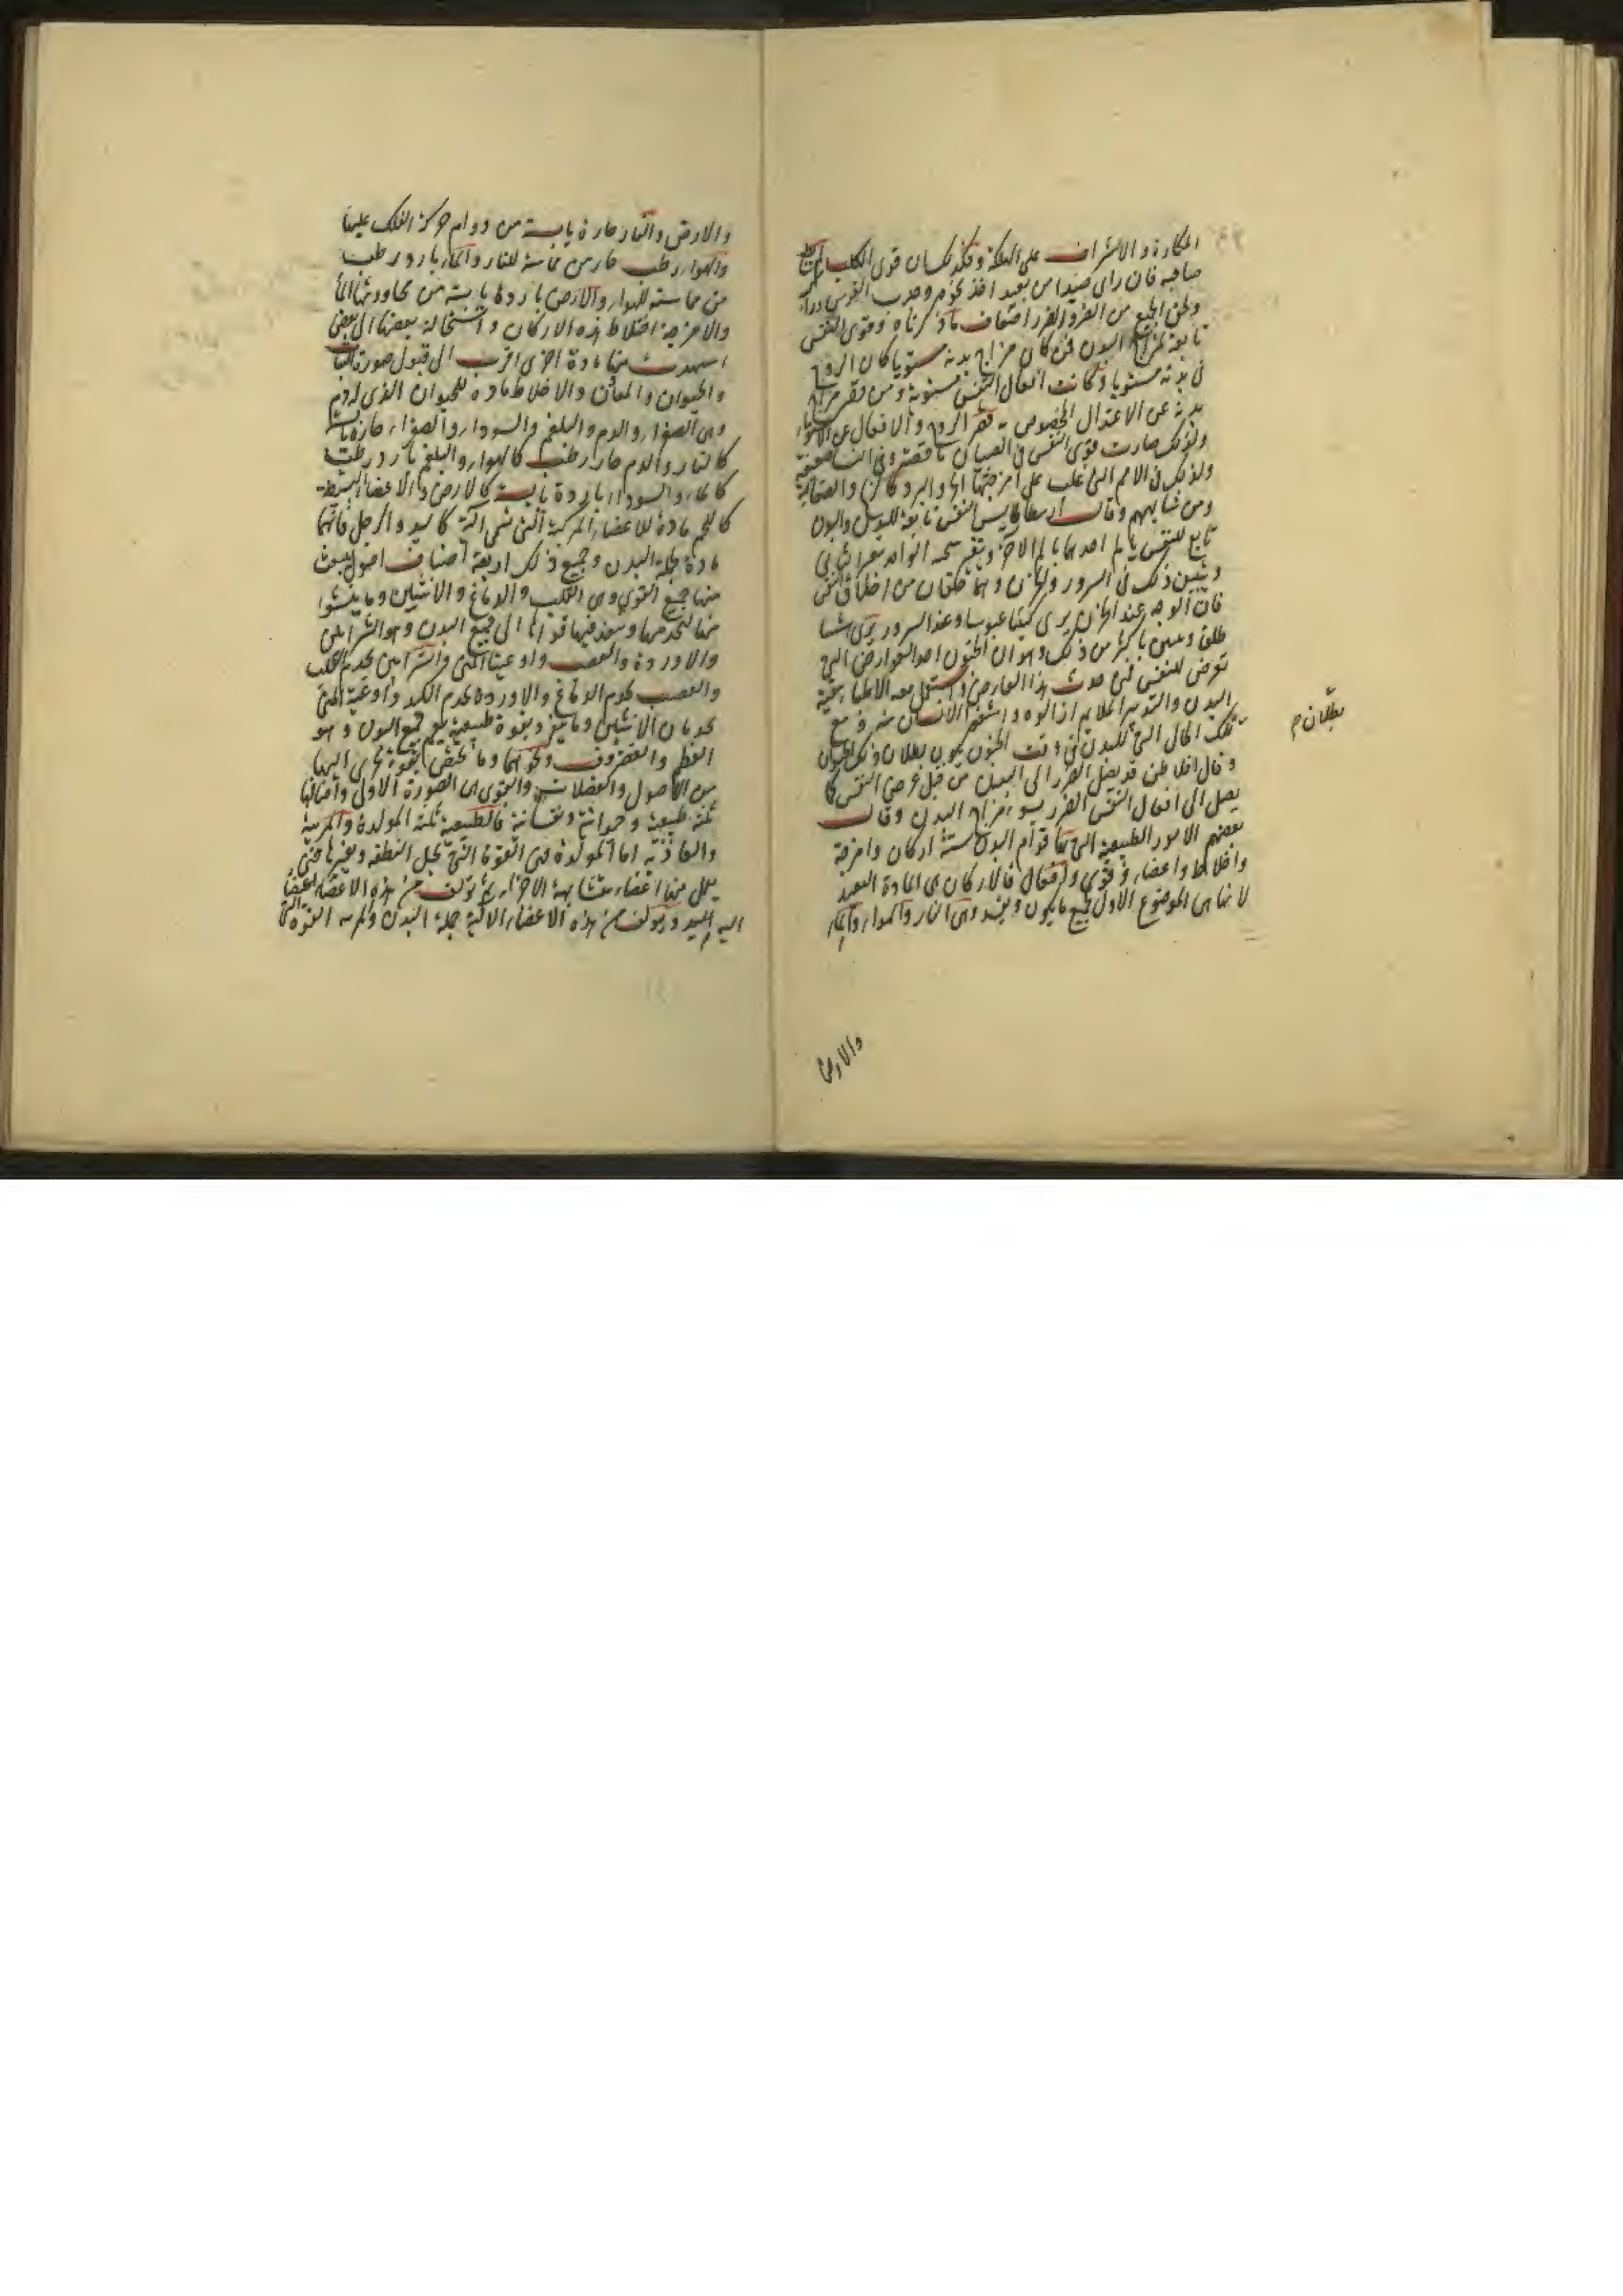 المكاره والاشراف على الهلكة وقد كان قوى الكلب
صاحبه فان راى صيدا من بعيد اخذ نحوه وضرب الفرس
ولحق الجميع من الضر اضعاف ما ذكرناه وقوى النفس
تابعة لمزاج البدن فمن كان مزاج بدنه مستويا كان الروح
فى بدنه مستويا وكانت افعال النفس مستوية ومن قصر مزاج
بدنه عن الاعتدال المخصوص به قصر الروح والافعال عن الاستواء
ولذلك صارت قوى النفس فى الصبيان ناقصة وفى النساء ضعيفة
ولذلك فى الامم التى غلب على امزجتها الحر والبرد كالزنج والصقالبة
ومن شابههم وقال ارسطاطاليس النفس تابعة للبدن والبدن
تابع للنفس يالم احدهما بالم الاخر وتتغير سحنة الواحد بتغير الثانى
ويتبين ذلك فى السرور والحزن وهما خلقان من اخلاق النفس
فان الوجه عند الحزن يرى كئيبا عبوسا وعند السرور يرى بشا
طلقا ويتبين باكثر من ذلك وهو ان الجنون احد العوارض التى
تعرض للنفس فمتى حدث هذا العارض استعمل معه الاطباء تنقية
البدن والتدبير الملايم اذ الوه واشفى الانسان منه فرفع
تلك الحال التى للبدن فى وقت الجنون يكون بطلان ذلك الجنون
بطلان م
وقال افلاطن قد يصل الضرر الى البدن من قبل عرض النفس كما
يصل الى افعال النفس الضرر بسوء مزاج البدن وقال
بعضهم الامور الطبيعية التى بها قوام البدن ستة اركان وامزجة
واخلاط واعضاء وقوى وافعال فالاركان هى المادة البعيدة
لانها هى الموضوع الاول لجميع ما يكون ويفسد وهى النار والهواء والماء
والارض
والارض والنار حارة يابسة من دوام حركة الفلك عليها
والهواء رطب حار من مماسة للنار والماء بارد رطب
من مماسته للهواء والارض باردة يابسة من مجاورتها الماء
والامزجة اختلاط هذه الاركان واستحالة بعضها الى بعض
منها مادة اخرى اقرب الى قبول صورة النبات
والحيوان والمعادن والاخلاط مادة للحيوان الذى له دم
وهى الصفراء والدم والبلغم والسوداء والصفراء حارة يابسة
كالنار والدم حار رطب كالهواء والبلغم بارد رطب
كالماء والسوداء باردة يابسة كالارض والاعضاء البسيطة
كاللحم مادة للاعضاء المركبة التى تسمى الية كاليد والرجل فانها
مادة لجملة البدن وجميع ذلك اربعة اصناف اصول ينبعث
منها جميع القوى وهى القلب والدماغ والانثيين وما ينشوا
منها لتخدمها وينفذ فيها قواها الى جميع البدن وهو الشرايين
والاوردة والعصب واوعية المنى والشرايين تخدم القلب
والعصب تخدم الدماغ والاوردة تخدم الكبد واوعية المنى
تخدمان الانثيين وما يتميز بقوة طبيعية تعم جميع البدن وهو
العظم والغضروف ونحوهما وما يختص بقوة تجرى اليها
من الاصول والعضلات والقوى هى الصورة الاول واصنافها
ثلثة طبيعية وحيوانية ونفسانية فالطبيعية ثلثة المولدة والمربية
والغاذية اما المولدة فهى القوة التى تحيل النطفة وتغيرها حتى
يعمل منها اعضاء متشابهة الاجزاء ثم تولف من هذه الاعضاء اعضاء
الية كاليد وتولف من هذه الاعضاء الالية جملة البدن والمربية القوة التى